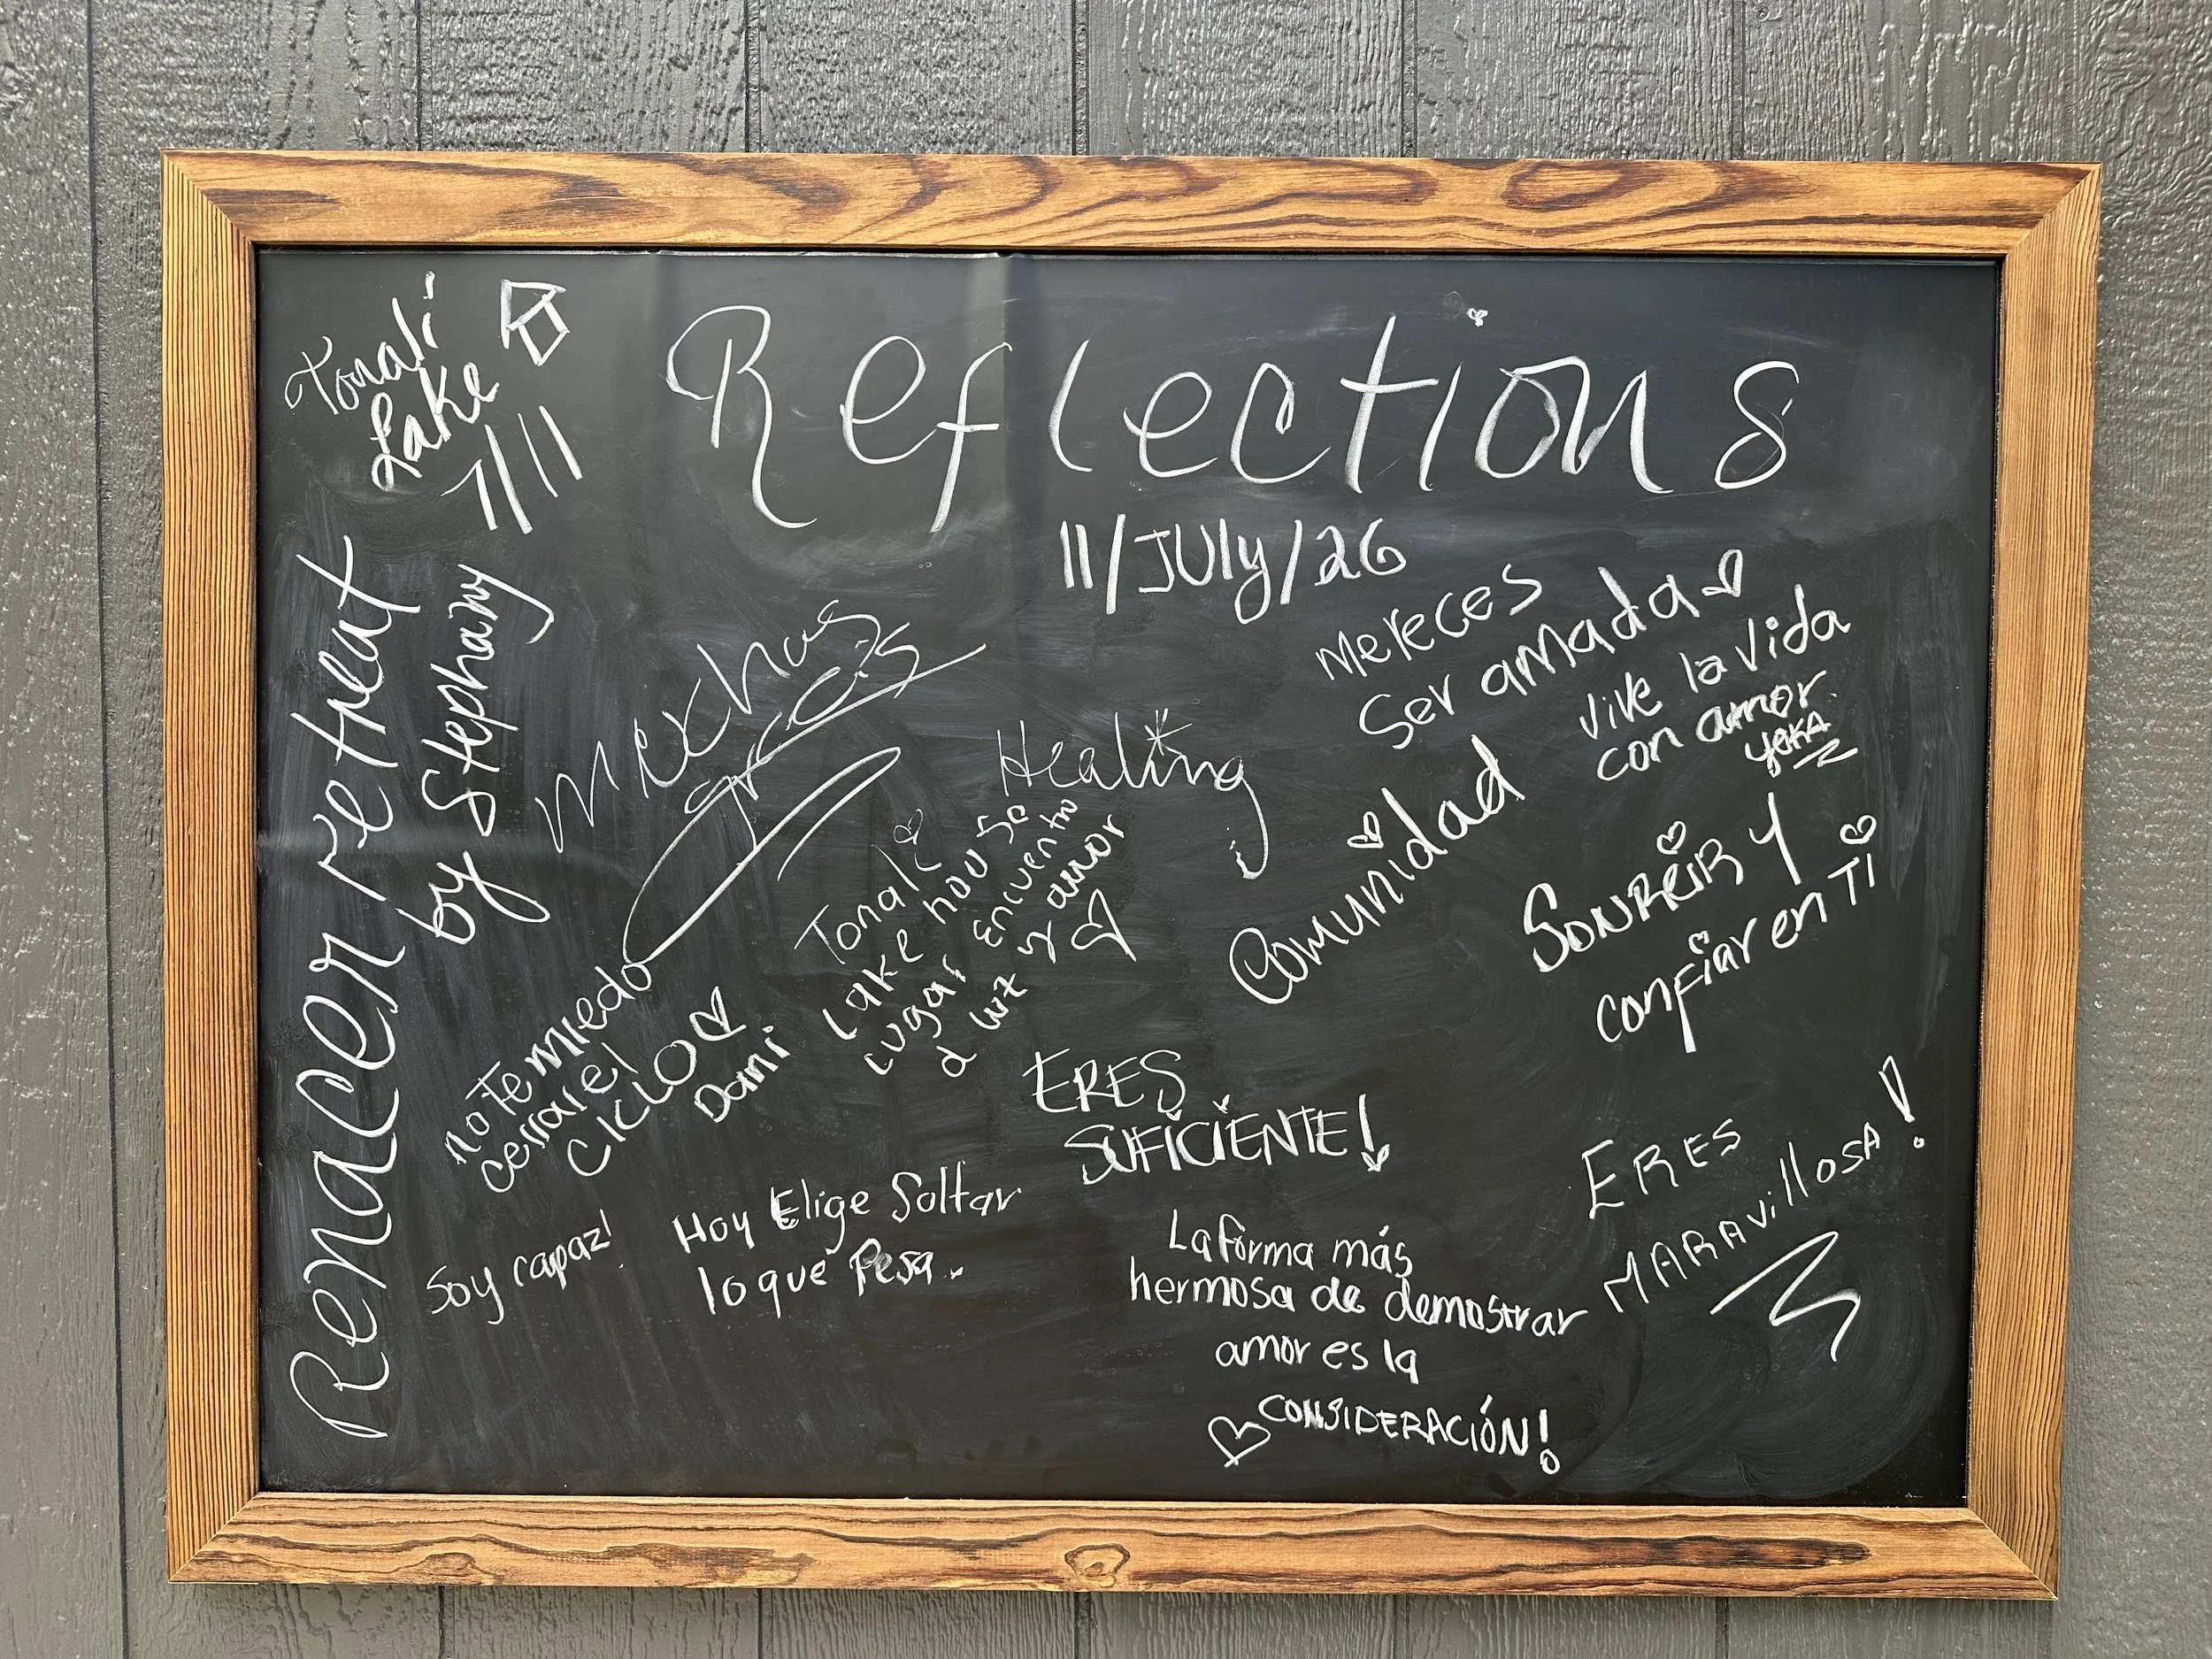 Tonali
Lake
7/11
Reflections
11/JULY/26
Renacer retreat
by Stephany
Muchas
Mereces
Ser amada
Vive la vida
con amor.
Healing
Tonali
Lake house
Lugar Encuentro
d luz y amor
Comunidad
SONREIR Y
confiar en TI
no Te miedo
cerrar el
CICLO
Dani
ERES
SUFICIENTE!
ERES
MARAVillOSA!
Soy capaz!
Hoy Elige Soltar
lo que Pesa.
La forma más
hermosa de demostrar
amor es la
CONSIDERACIÓN!